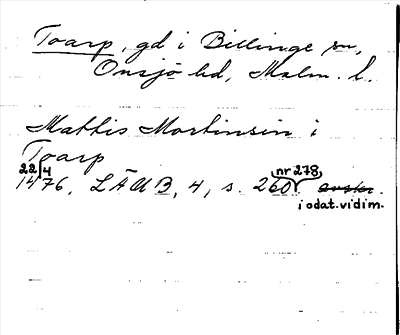 Toarp, gd i Billinge sn,
Onsjö hd, Malm. l.
Mattis Mortinsin i
Toarp
22/4 nr 278,
1476, LÄUB, 4, s. 260 avskr.
i odat. vidim.